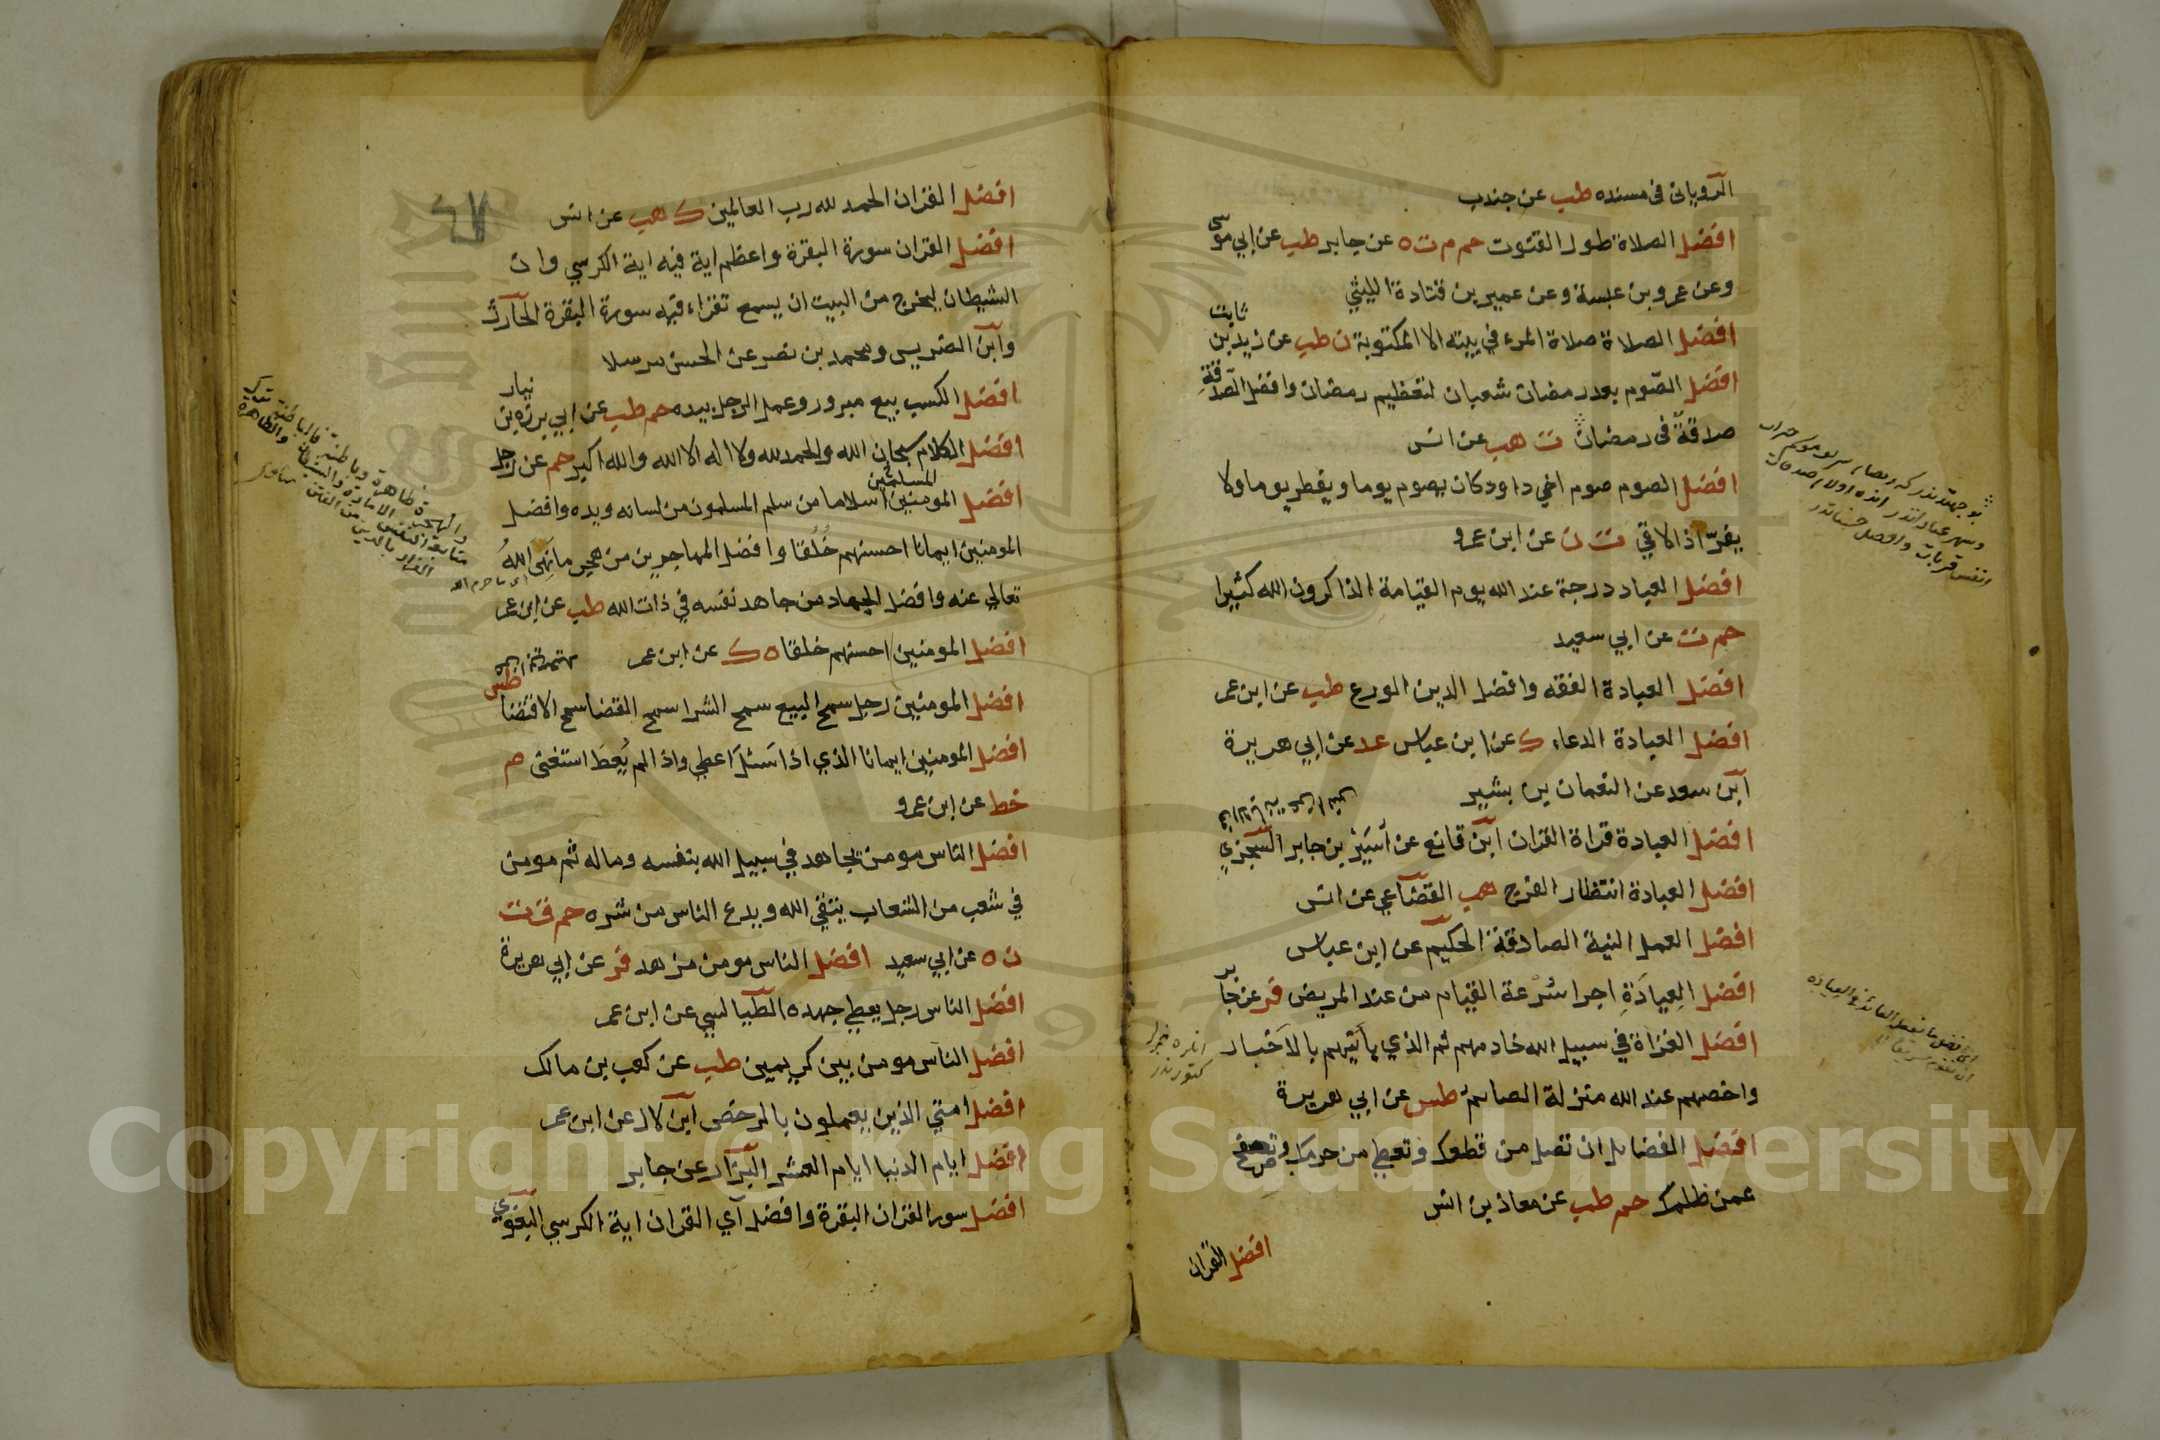 الروياني في مسنده طب عن جندب
افضل الصلاة طول القنوت حم م ت ه عن جابر طب عن ابي موسى
وعن عمرو بن عبسة وعن عمير بن قتادة الليثي
افضل الصلاة صلاة المرء في بيته الا المكتوبة ن طب عن زيد بن ثابت
افضل الصوم بعد رمضان شعبان لتعظيم رمضان وافضل الصدقة
صدقة في رمضان ت هب عن انس
افضل الصوم صوم اخي داود كان يصوم يوما ويفطر يوما ولا
يفر اذا لاقي ت ن عن ابن عمرو
افضل العباد درجة عند الله يوم القيامة الذاكرون الله كثيرا
حم ت عن ابي سعيد
افضل العبادة الفقه وافضل الدين الورع طب عن ابن عمر
افضل العبادة الدعاء ك عن ابن عباس عد عن ابي هريرة
ابن سعد عن النعمان بن بشير
افضل العبادة قراة القران ابن قانع عن اسير بن جابر السجزي
افضل العبادة انتظار الفرج هب القضاعي عن انس
افضل العمل النية الصادقة الحكيم عن ابن عباس
افضل العيادة اجرا سرعة القيام من عند المريض فر عن جابر
افضل الغزاة في سبيل الله خادمهم ثم الذي ياتيهم بالاخبار
واخصهم عند الله منزلة الصائم طس عن ابي هريرة
افضل الفضايل ان تصل من قطعك وتعطي من حرمك وتصفح
عمن ظلمك حم طب عن معاذ بن انس
افضل القران
افضل القران الحمد لله رب العالمين ك هب عن انس
افضل القران سورة البقرة واعظم اية فيه اية الكرسي وان
الشيطان ليخرج من البيت ان يسمع تقراء فيه سورة البقرة الحارث
وابن الضريس ومحمد بن نصر عن الحسن مرسلا
افضل الكسب بيع مبرور وعمل الرجل بيده حم طب عن ابي بردة بن نيار
افضل الكلام سبحان الله والحمد لله ولا اله الا الله والله اكبر حم عن رجل
افضل المومنين اسلاما من سلم المسلمون من لسانه ويده وافضل
المومنين ايمانا احسنهم خُلُقا وافضل المهاجرين من هجر ما نهى اللهُ
تعالي عنه وافضل الجهاد من جاهد نفسه في ذات الله طب عن ابن عمر
افضل المومنين احسنهم خلقا ه ك عن ابن عمر
افضل المومنين رجل سمح البيع سمح الشرا سمح القضا سمح الاقتضا طس
افضل المومنين ايمانا الذي اذا سئل اعطي واذا لم يُعطَ استغنى ه
خط عن ابن عمرو
افضل الناس مومن يجاهد في سبيل الله بنفسه وماله ثم مومن
في شعب من الشعاب يتقي الله ويدع الناس من شره حم ق ت
ن ه عن ابي سعيد افضل الناس مومن مزهد فر عن ابي هريرة
افضل الناس رجل يعطي جهده الطيالسي عن ابن عمر
افضل الناس مومن بين كريمين طب عن كعب بن مالك
افضل امتي الذين يعملون بالرخص ابن لال عن ابن عمر
افضل ايام الدنيا ايام العشر البزار عن جابر
افضل سور القران البقرة وافضل آي القران اية الكرسي البغوي
Copyright © King Saud University
1957